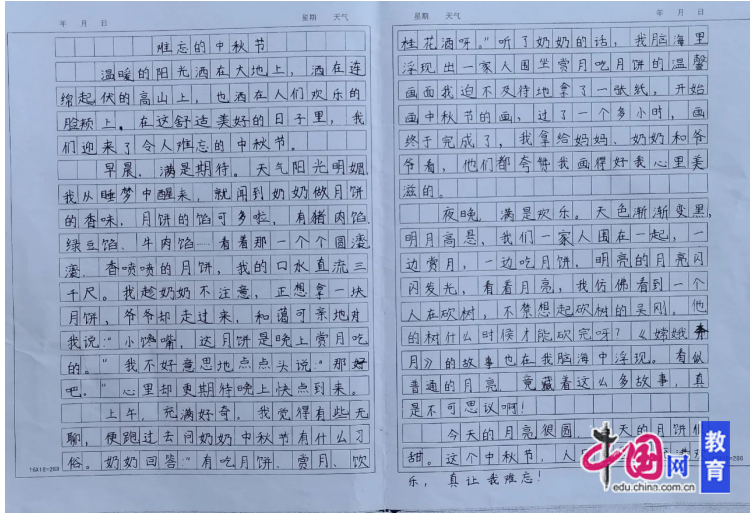 年 月 日 星期 天气
难忘的中秋节
温暖的阳光洒在大地上，洒在连
绵起伏的高山上，也洒在人们欢乐的
脸颊上。在这舒适美好的日子里，我
们迎来了令人难忘的中秋节。
早晨，满是期待。天气阳光明媚，
我从睡梦中醒来，就闻到奶奶做月饼
的香味，月饼的馅可多啦，有猪肉馅，
绿豆馅，牛肉馅……看着那一个个圆滚
滚，香喷喷的月饼，我的口水直流三
千尺。我趁奶奶不注意，正想拿一块
月饼，爷爷却走过来，和蔼可亲地对
我说：“小馋嘴，这月饼是晚上赏月吃
的。”我不好意思地点点头说：“那好
吧。”心里却更期待晚上快点到来。
上午，充满好奇。我觉得有些无
聊，便跑过去问奶奶中秋节有什么习
俗。奶奶回答：“有吃月饼，赏月、饮
星期 天气 年 月 日
桂花酒呀。”听了奶奶的话，我脑海里
浮现出一家人围坐赏月吃月饼的温馨
画面我迫不及待地拿了一张纸，开始
画中秋节的画，过了一个多小时，画
终于完成了，我拿给妈妈、奶奶和爷
爷看，他们都夸赞我画得好我心里美
滋滋的。
夜晚，满是欢乐。天色渐渐变黑，
明月高悬，我们一家人围在一起，一
边赏月，一边吃月饼，明亮的月亮闪
闪发光，看着月亮，我仿佛看到一个
人在砍树，不禁想起砍树的吴刚。他
的树什么时候才能砍完呀？《嫦娥奔
月》的故事也在我脑海中浮现。看似
普通的月亮，竟藏着这么多故事，真
是不可思议啊！
今天的月亮很圆，天的月饼
甜。这个中秋节，人
乐，真让我难忘！
中国网
edu.china.com.cn
教育